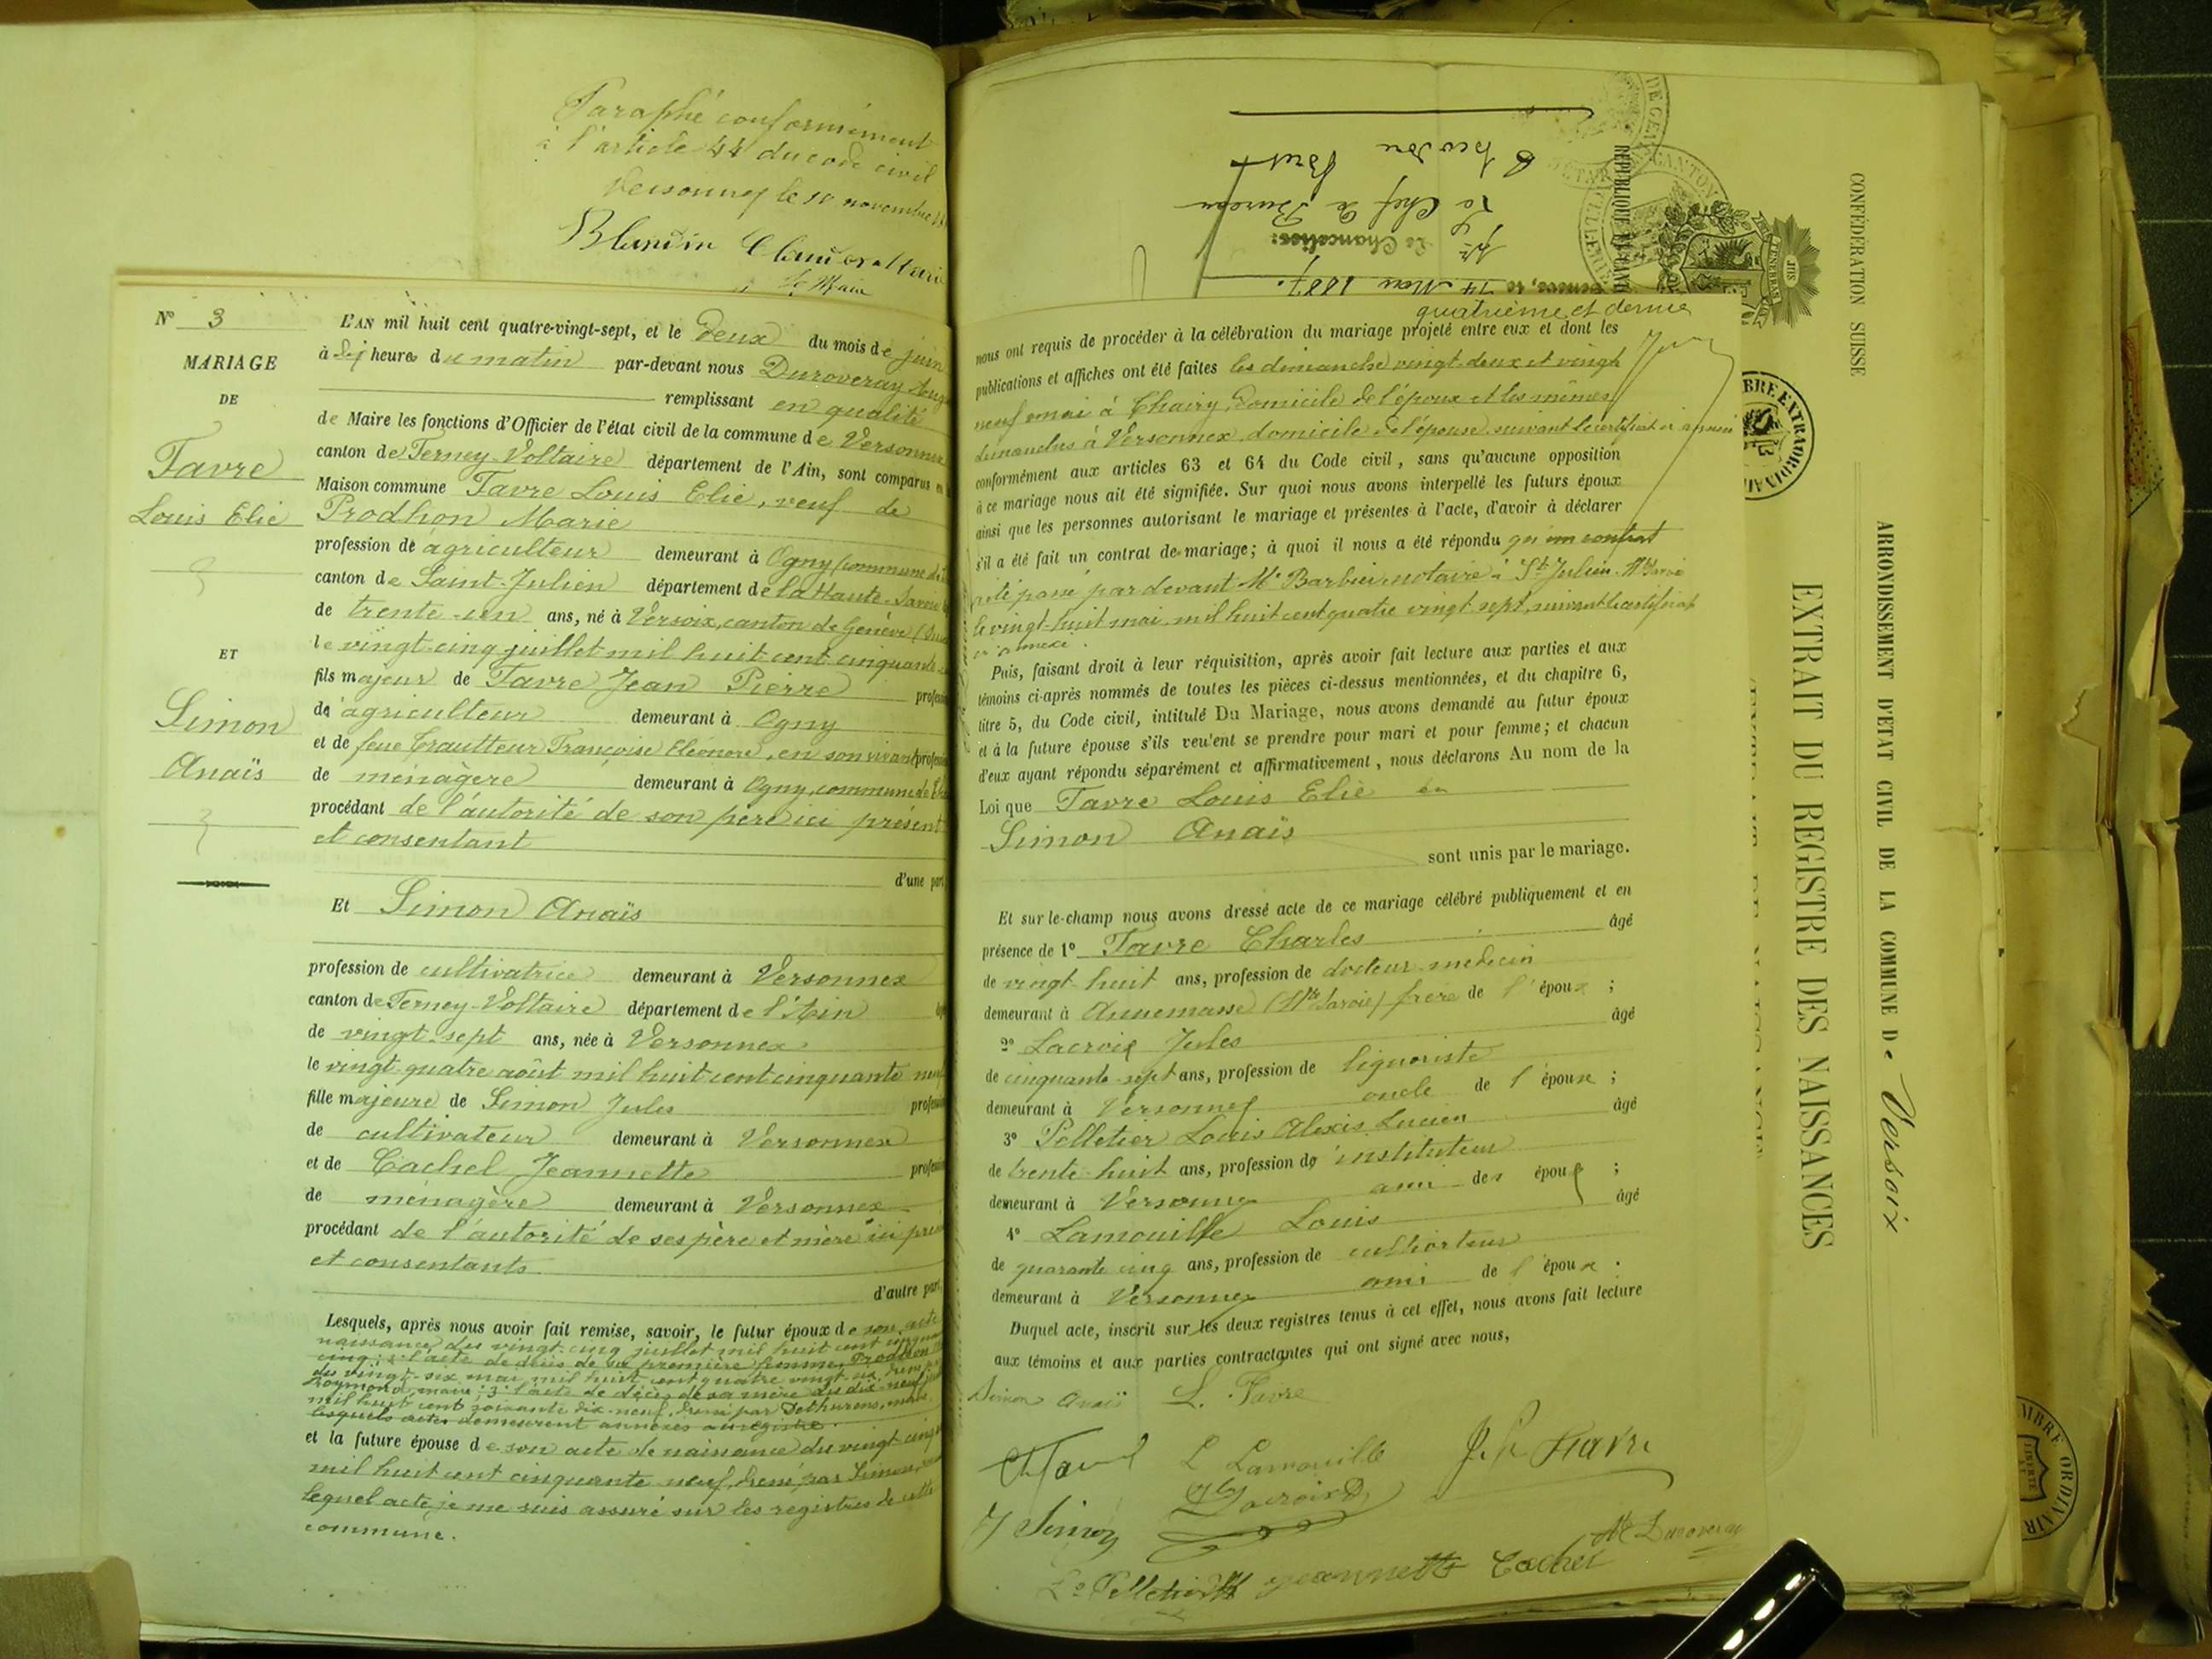 Paraphé conformément
à l'article 44 du code civil
Versonnex le 10 novembre
Blandin Claude Marie
le Maire
N° 3
MARIAGE
DE
Favre
Louis Elie
ET
Simon
Anaïs
L'AN mil huit cent quatre-vingt-sept, et le deux du mois de juin
à dix heures du matin par-devant nous Duroveray
remplissant en qualité
de Maire les fonctions d'Officier de l'état civil de la commune de Versonnex
canton de Ferney-Voltaire département de l'Ain, sont comparus en
Maison commune Favre Louis Elie, veuf de
Prodhon Marie
profession de agriculteur demeurant à Ogny (commune de
canton de Saint-Julien département de la Haute-Savoie
de trente-un ans, né à Versoix, canton de Genève
le vingt-cinq juillet mil huit cent cinquante
fils majeur de Favre Jean Pierre profession
de agriculteur demeurant à Ogny
et de feue Françoise Eléonore, en son vivant profession
de ménagère demeurant à Ogny, commune de
procédant de l'autorité de son père ici présent
et consentant
d'une part
Et Simon Anaïs
profession de cultivatrice demeurant à Versonnex
canton de Ferney-Voltaire département de l'Ain
de vingt-sept ans, née à Versonnex
le vingt-quatre août mil huit cent cinquante neuf
fille majeure de Simon Jules profession
de cultivateur demeurant à Versonnex
et de Cachel Jeannette profession
de ménagère demeurant à Versonnex
procédant de l'autorité de ses père et mère ici
et consentants
d'autre part,
Lesquels, après nous avoir fait remise, savoir, le futur époux de son acte
naissance du vingt-cinq juillet mil huit cent cinquante
cinq; 2° l'acte de décès de sa première femme, Prodhon
du vingt-six mai mil huit cent quatre vingt-six,
Roymond, maire; 3° l'acte de décès de sa mère du dix-neuf
mil huit cent soixante dix-neuf, dressé par Dethurens, maire
lesquels actes demeurent annexés au registre.
et la future épouse de son acte de naissance du vingt-cinq
mil huit cent cinquante neuf, dressé par Simon,
lequel acte je me suis assuré sur les registres de cette
commune.
Genève, le 14 Mai 1887.
Le Chancelier:
Le Chef de Bureau
quatrième et dernier
nous ont requis de procéder à la célébration du mariage projeté entre eux et dont les
publications et affiches ont été faites les dimanches vingt-deux et vingt
neuf mai à Thairy, domicile de l'époux et les mêmes
dimanches à Versonnex, domicile de l'épouse, suivant le certificat ci annexé
conformément aux articles 63 et 64 du Code civil, sans qu'aucune opposition
à ce mariage nous ait été signifiée. Sur quoi nous avons interpellé les futurs époux
ainsi que les personnes autorisant le mariage et présentes à l'acte, d'avoir à déclarer
s'il a été fait un contrat de mariage; à quoi il nous a été répondu qu'un contrat
a été passé par devant Me Barbier, notaire à St Julien, Hte Savoie
le vingt-huit mai mil huit cent quatre vingt sept, suivant le certificat
ci annexé.
Puis, faisant droit à leur réquisition, après avoir fait lecture aux parties et aux
témoins ci-après nommés de toutes les pièces ci-dessus mentionnées, et du chapitre 6,
titre 5, du Code civil, intitulé Du Mariage, nous avons demandé au futur époux
et à la future épouse s'ils veulent se prendre pour mari et pour femme; et chacun
d'eux ayant répondu séparément et affirmativement, nous déclarons Au nom de la
Loi que Favre Louis Elie et
Simon Anaïs
sont unis par le mariage.
Et sur-le-champ nous avons dressé acte de ce mariage célébré publiquement et en
présence de 1° Favre Charles âgé
de vingt-huit ans, profession de docteur-médecin
demeurant à Annemasse (Hte Savoie) frère de l'époux;
2° Lacroix Jules âgé
de cinquante-sept ans, profession de liquoriste
demeurant à Versonnex oncle de l'époux;
3° Pelletier Louis Alexis Lucien âgé
de trente-huit ans, profession de instituteur
demeurant à Versonnex ami des époux;
4° Lamouille Louis âgé
de quarante cinq ans, profession de cultivateur
demeurant à Versonnex ami de l'époux.
Duquel acte, inscrit sur les deux registres tenus à cet effet, nous avons fait lecture
aux témoins et aux parties contractantes qui ont signé avec nous,
Simon Anaïs L. Favre
L Lamouille
J. P. Favre
J Simon
Jles Lacroix
Ls Pelletier
Jeannette Cachel
Duroveray
CONFÉDÉRATION SUISSE
RÉPUBLIQUE ET CANTON
ARRONDISSEMENT D'ÉTAT CIVIL DE LA COMMUNE De Versoix
EXTRAIT DU REGISTRE DES NAISSANCES